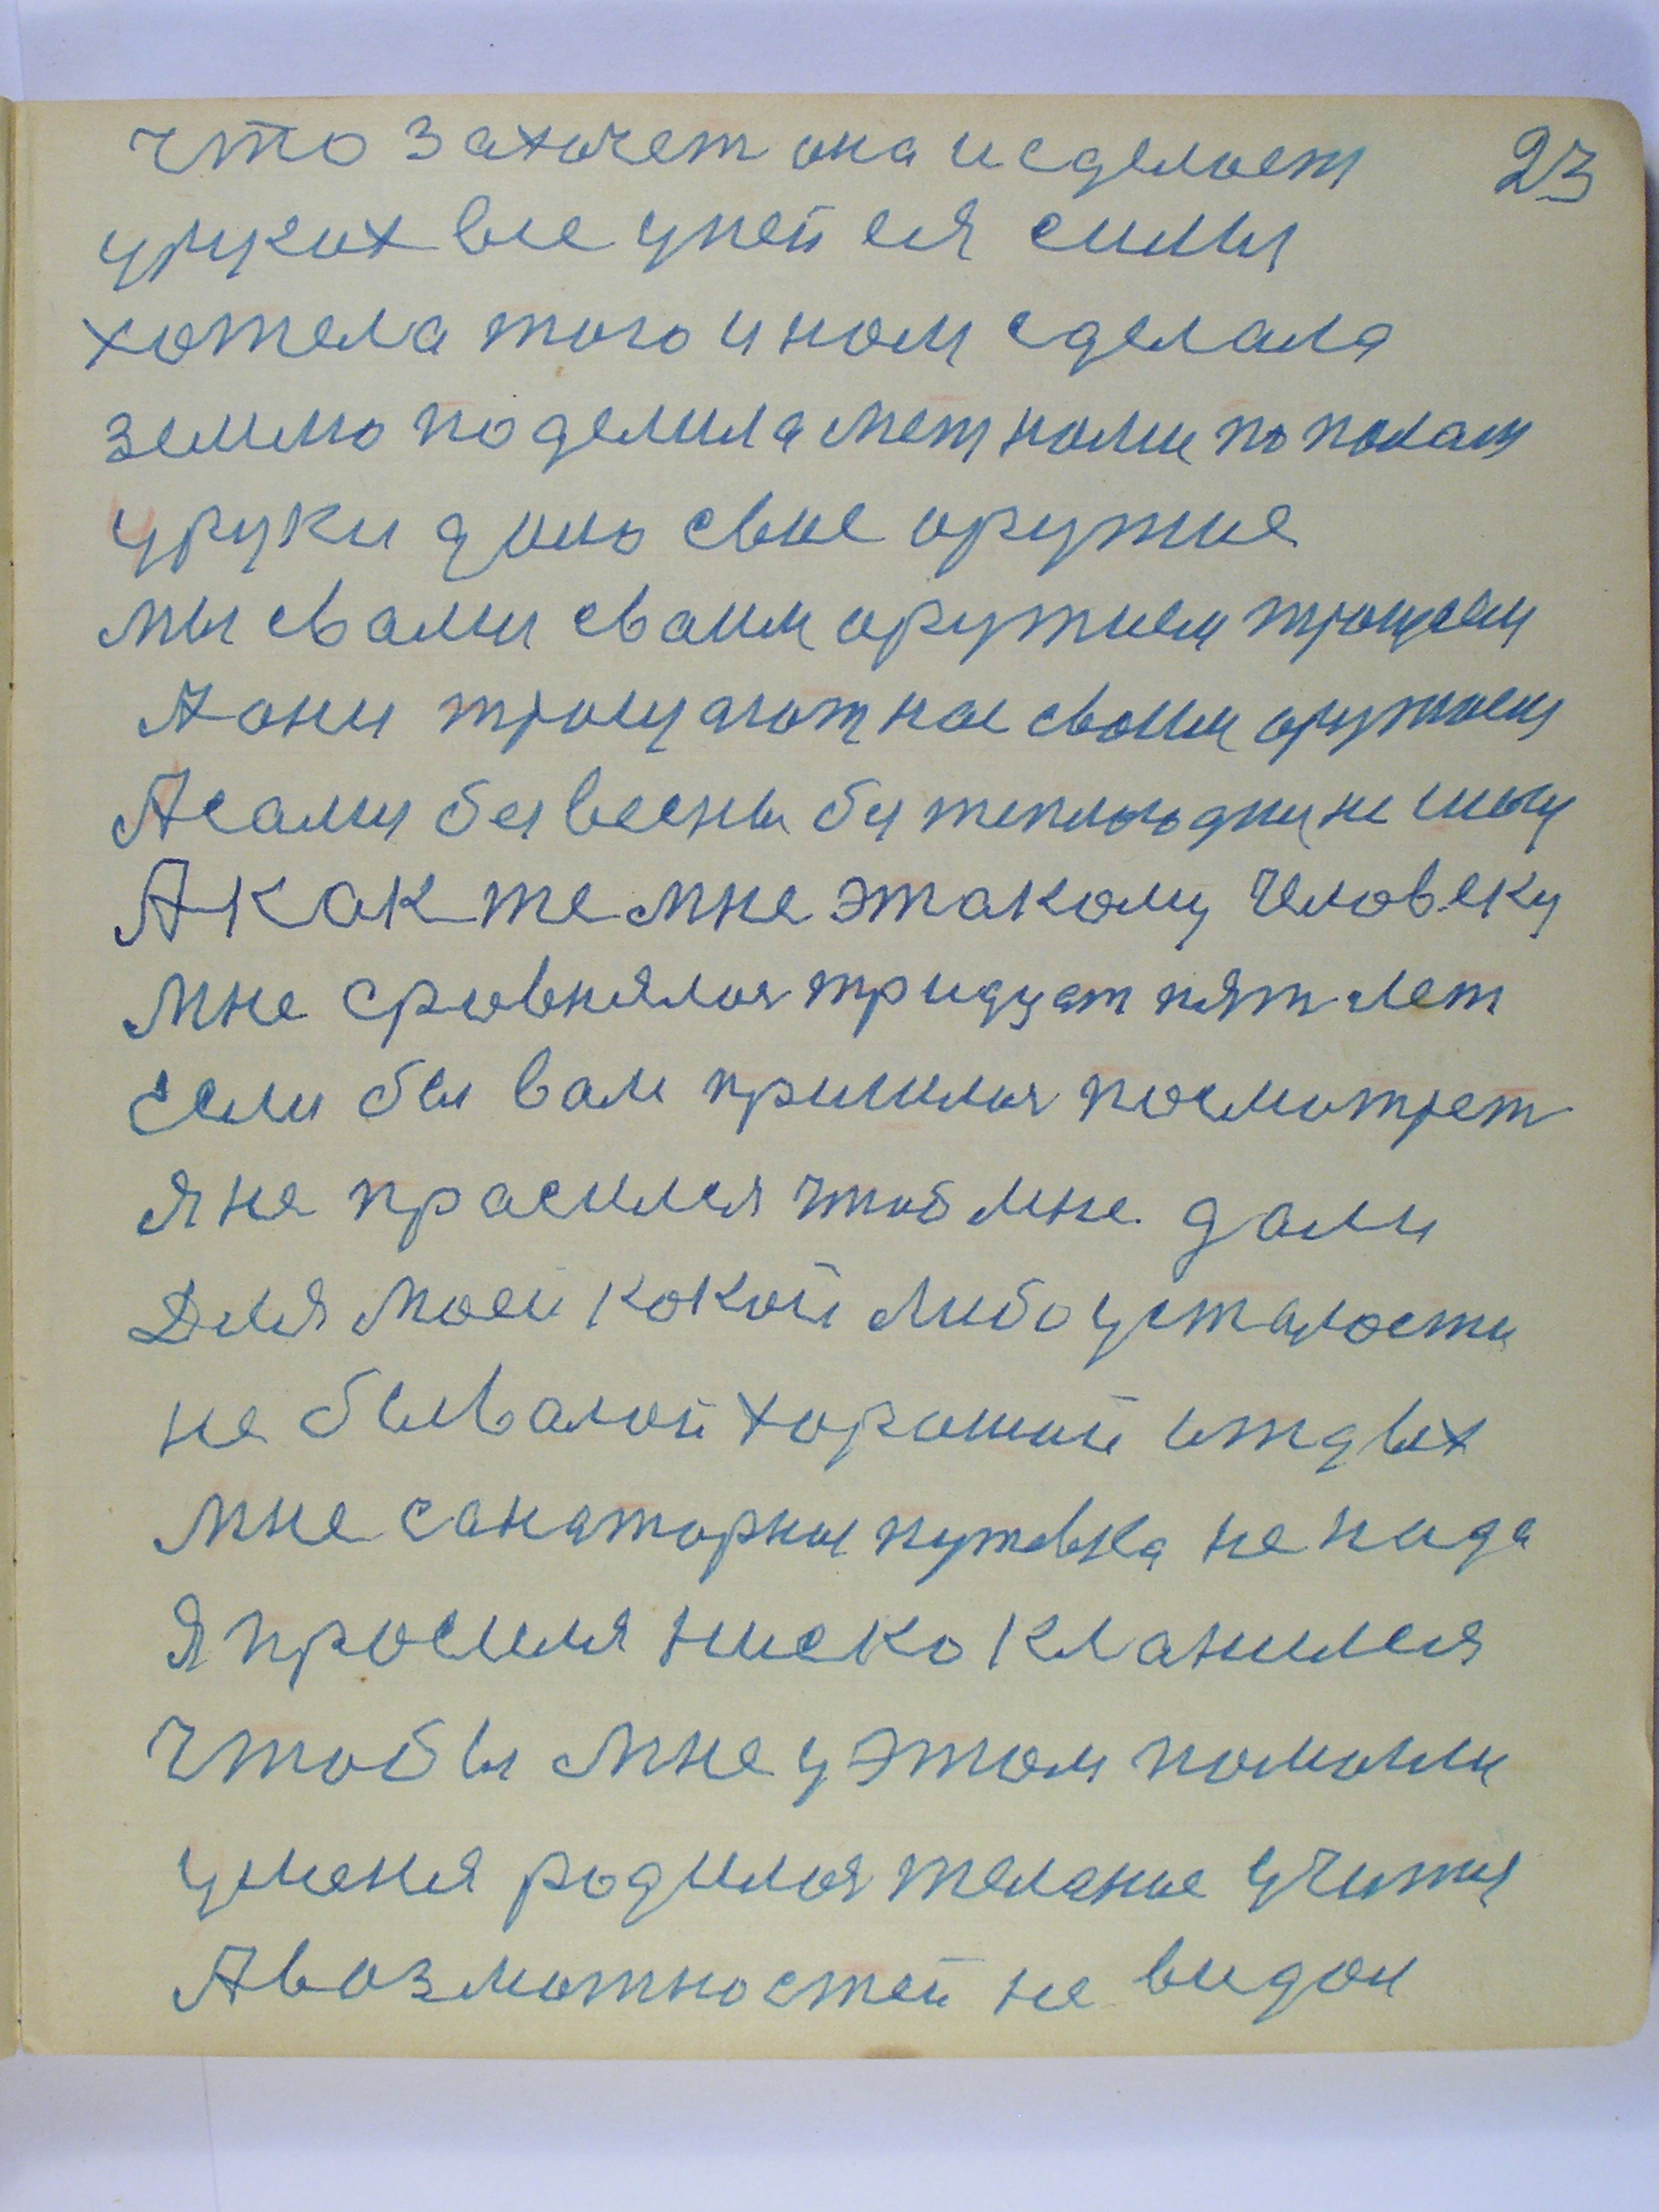 что захочет она и сделает 23
у руках все у ней ея силы
хотела того и нам сделала
землю поделила меж нами по полам
у руки дало свае оружие
мы свами сваим оружием трощаем
А они трощают нас своим оружием
А сами без весны без теплого дни не могу
А как же мне этакому человеку
мне сровнялоя тридцат пят лет
если бы вам пришлоя посмотрет
я не прасился чтоб мне дали
Для моей какой либо усталости
не бывалой хороший отдых
мне санаторных путевка не нада
Я просился ниско кланился
Чтобы мне у этом помогли
у меня родилоя желание учится
А возможностей не видал